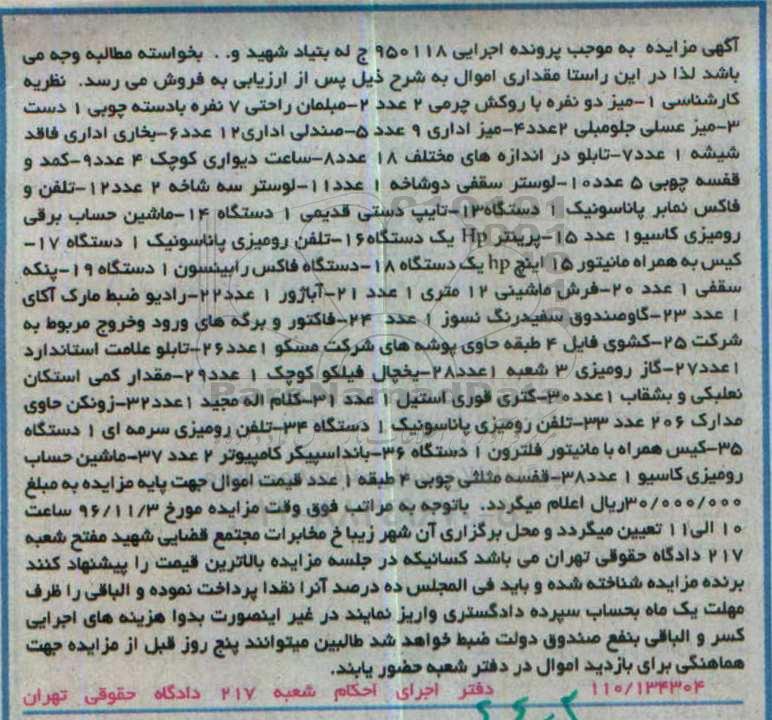 آگهی مزایده به موجب پرونده اجرایی ۹۵۰۱۱۸ ج له بنیاد شهید و. . بخواسته مطالبه وجه می
باشد لذا در این راستا مقداری اموال به شرح ذیل پس از ارزیابی به فروش می رسد. نظریه
کارشناسی ۱-میز دو نفره با روکش چرمی ۲ عدد ۲-مبلمان راحتی ۷ نفره بادسته چوبی ۱ دست
۳-میز عسلی جلومبلی ۲عدد۴-میز اداری ۹ عدد ۵-صندلی اداری۱۲ عدد۶-بخاری اداری فاقد
شیشه ۱ عدد۷-تابلو در اندازه های مختلف ۱۸ عدد۸-ساعت دیواری کوچک ۴ عدد۹-کمد و
قفسه چوبی ۵ عدد۱۰-لوستر سقفی دوشاخه ۱ عدد۱۱-لوستر سه شاخه ۲ عدد۱۲-تلفن و
فاکس نمابر پاناسونیک ۱ دستگاه۱۳-تایپ دستی قدیمی ۱ دستگاه ۱۴-ماشین حساب برقی
رومیزی کاسیو۱ عدد ۱۵-پرینتر Hp یک دستگاه۱۶-تلفن رومیزی پاناسونیک ۱ دستگاه ۱۷-
کیس به همراه مانیتور ۱۵ اینچ hp یک دستگاه ۱۸-دستگاه فاکس رابینسون ۱ دستگاه ۱۹-پنکه
سقفی ۱ عدد ۲۰-فرش ماشینی ۱۲ متری ۱ عدد ۲۱-آباژور ۱ عدد۲۲-رادیو ضبط مارک آکای
۱ عدد ۲۳-گاوصندوق سفیدرنگ نسوز ۱ عدد ۲۴-فاکتور و برگه های ورود وخروج مربوط به
شرکت ۲۵-کشوی فایل ۴ طبقه حاوی پوشه های شرکت مسکو ۱عدد۲۶-تابلو علامت استاندارد
۱عدد۲۷-گاز رومیزی ۳ شعبه ۱عدد۲۸-یخچال فیلکو کوچک ۱ عدد۲۹-مقدار کمی استکان
نعلبکی و بشقاب ۱عدد۳۰-کتری قوری استیل ۱ عدد ۳۱-کلام اله مجید ۱عدد۳۲-زونکن حاوی
مدارک ۲۰۶ عدد ۳۳-تلفن رومیزی پاناسونیک ۱ دستگاه ۳۴-تلفن رومیزی سرمه ای ۱ دستگاه
۳۵-کیس همراه با مانیتور فلترون ۱ دستگاه ۳۶-بانداسپیکر کامپیوتر ۲ عدد ۳۷-ماشین حساب
رومیزی کاسیو ۱ عدد۳۸-قفسه مثلثی چوبی ۴ طبقه ۱ عدد قیمت اموال جهت پایه مزایده به مبلغ
۳۰/۰۰۰/۰۰۰ریال اعلام میگردد. باتوجه به مراتب فوق وقت مزایده مورخ ۹۶/۱۱/۳ ساعت
۱۰ الی۱۱ تعیین میگردد و محل برگزاری آن شهر زیبا خ مخابرات مجتمع قضایی شهید مفتح شعبه
۲۱۷ دادگاه حقوقی تهران می باشد کسانیکه در جلسه مزایده بالاترین قیمت را پیشنهاد کنند
برنده مزایده شناخته شده و باید فی المجلس ده درصد آنرا نقدا پرداخت نموده و الباقی را ظرف
مهلت یک ماه بحساب سپرده دادگستری واریز نمایند در غیر اینصورت بدوا هزینه های اجرایی
کسر و الباقی بنفع صندوق دولت ضبط خواهد شد طالبین میتوانند پنج روز قبل از مزایده جهت
هماهنگی برای بازدید اموال در دفتر شعبه حضور یابند.
۱۱۰/۱۳۴۳۰۴ دفتر اجرای احکام شعبه ۲۱۷ دادگاه حقوقی تهران